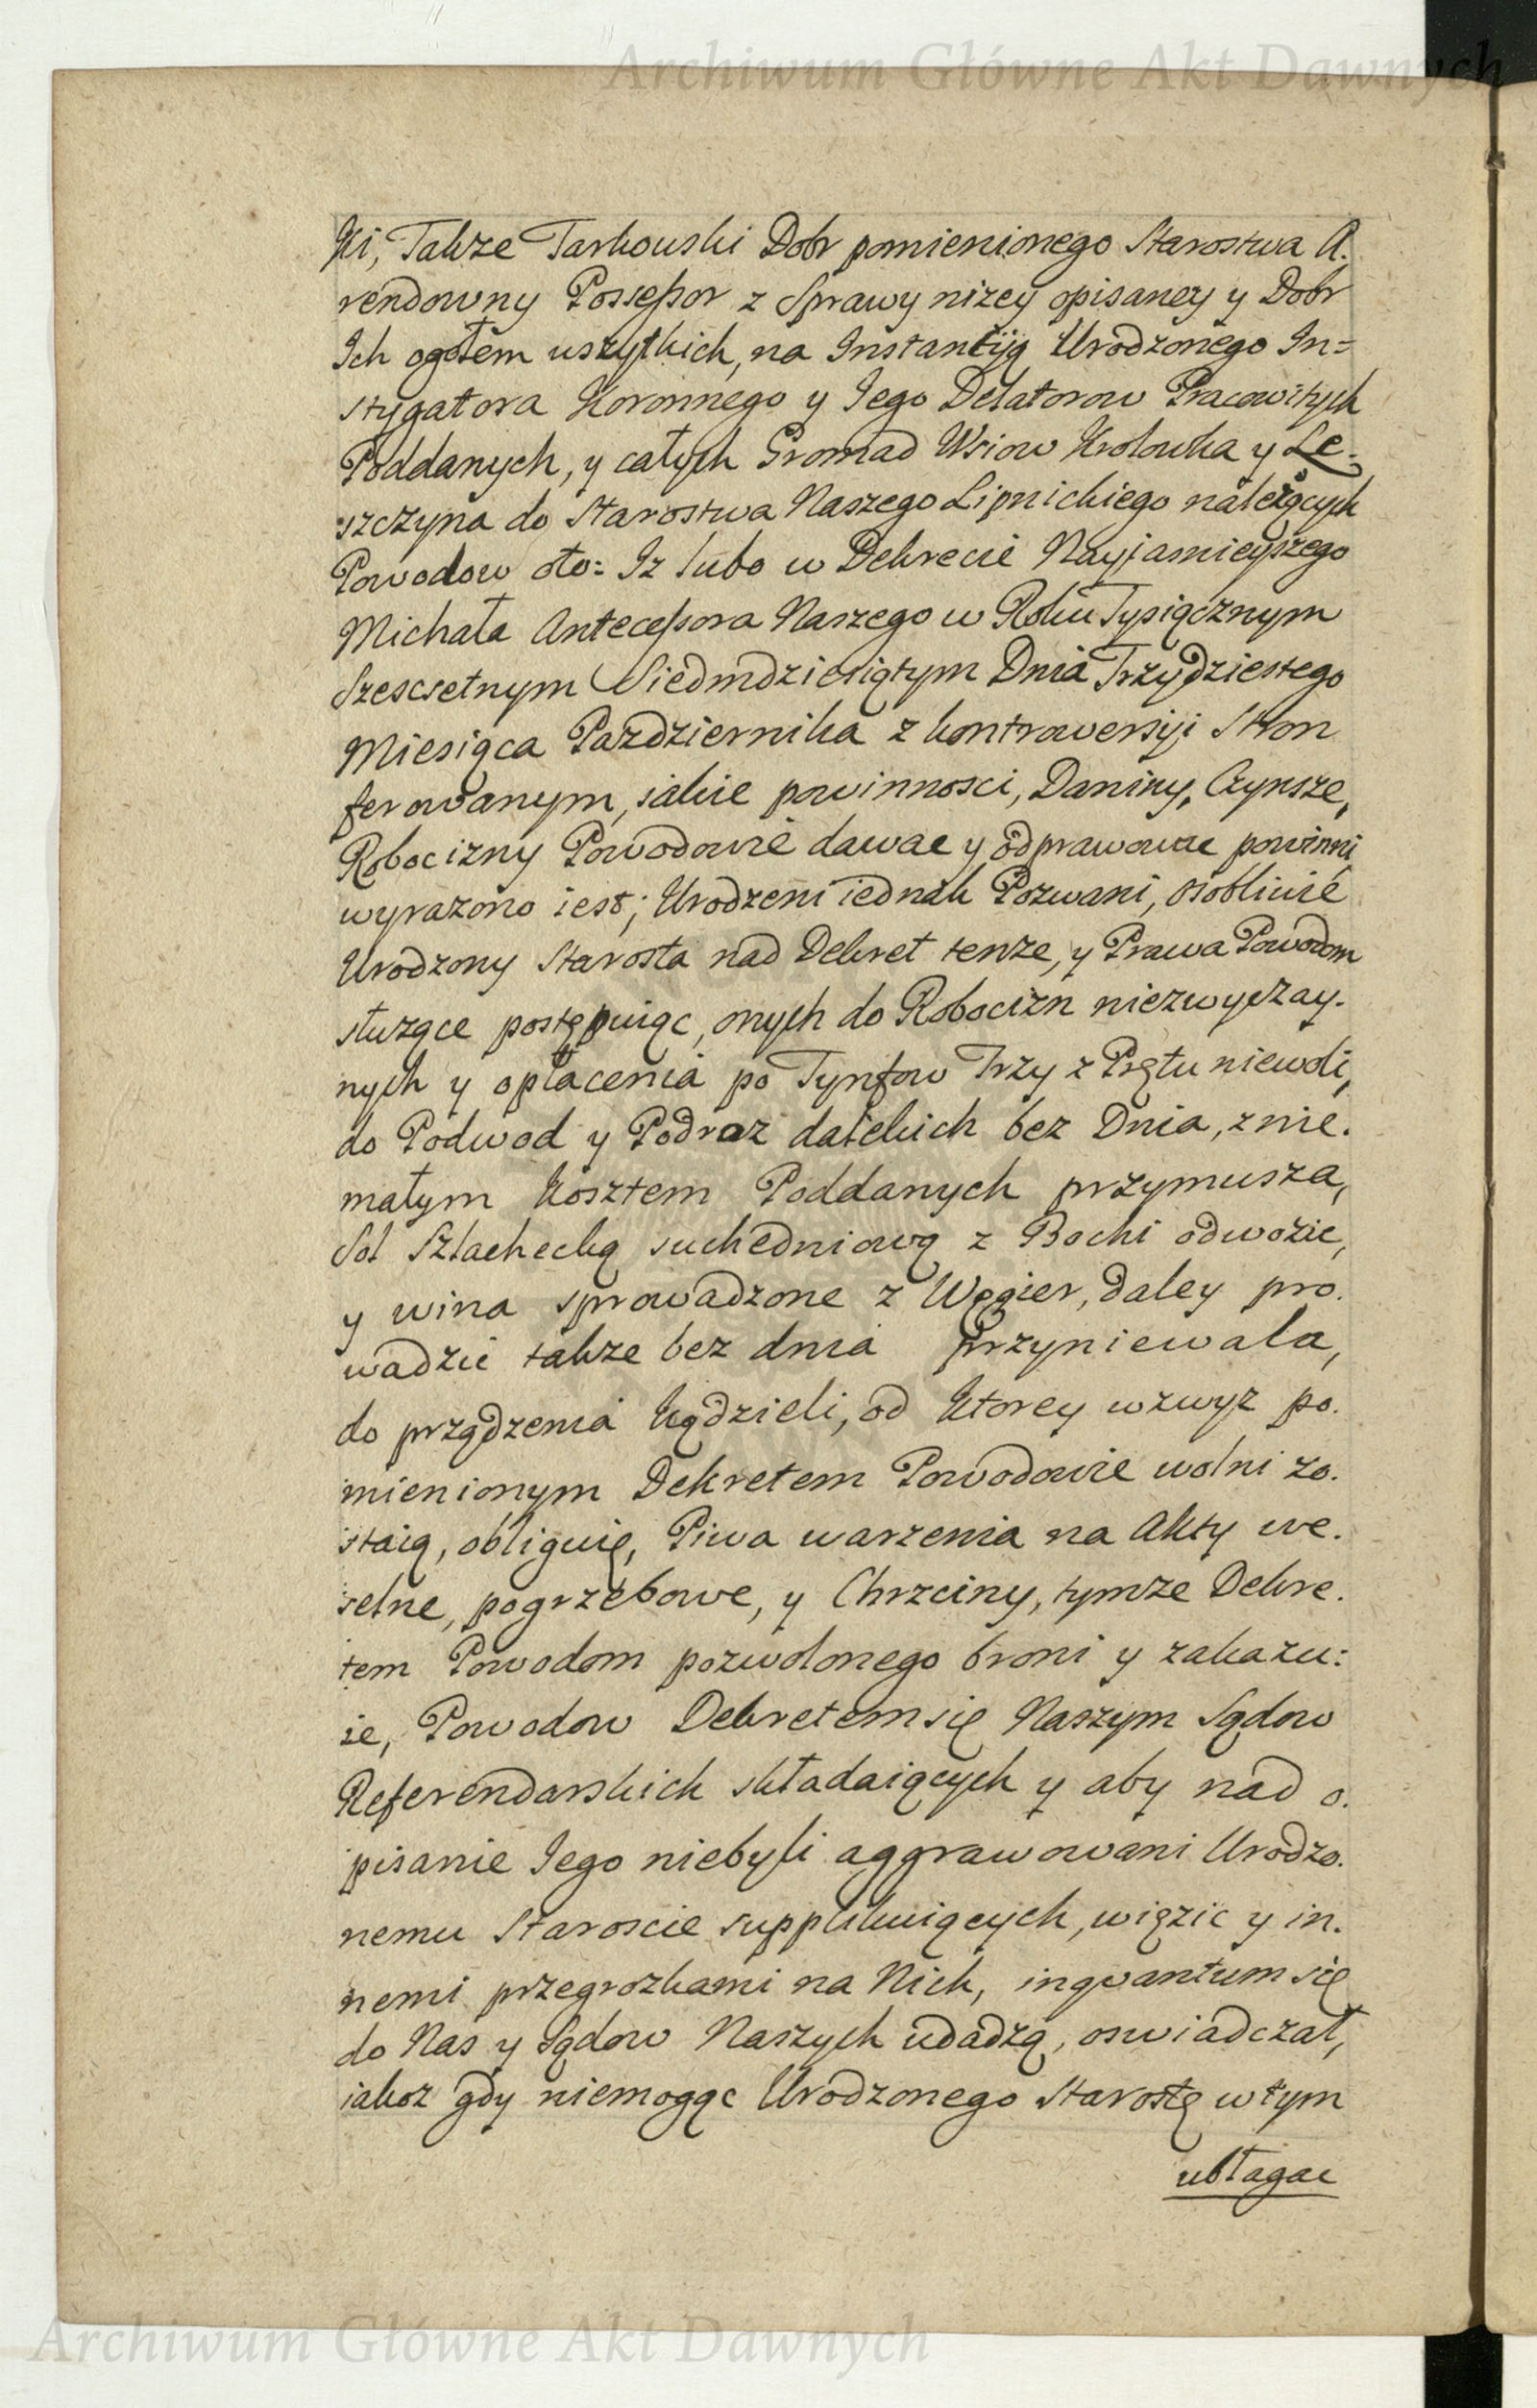 Archiwum Główne Akt Dawnych
Ki, Takze Tarkowski Dobr pomienionego Starostwa A.
rendowny Possessor z Sprawy nizey opisaney y Dobr
Ich ogołem wszytkich, na Instantiją Urodzonego In=
stygatora Koronnego y Iego Delatorow Pracowitych
Poddanych, y całych Gromad Wsiow Krolowka y Le-
szczyna do Starostwa Naszego Lipnickiego nalezących
Powodow oto: Iz lubo w Dekrecie Nayjasnieyszego
Michała Antecessora Naszego w Roku Tysiącznym
Szescsetnym Siedmdziesiątym Dnia Trzydziestego
Miesiąca Pazdziernika z kontrowersyi Stron
ferowanym, iakie powinnosci, Daniny, Czynsze,
Robocizny Powodowie dawac y odprawowac powinni
wyrazono iest; Urodzeni iednak Pozwani, osobliwie
Urodzony Starosta nad Dekret tenze, y Prawa Powodom
słuzące postępuiąc, onych do Robocizn niezwyczay.
nych y opłacenia po Tynfow Trzy z Prętu niewoli,
do Podwod y Podroz dalekich bez Dnia, z nie.
małym Kosztem Poddanych przymusza,
Sol Szlachecką suchedniową z Bochi odwozic,
y wina sprowadzone z Węgier, daley pro.
wadzic takze bez dnia przyniewala,
do przędzenia kądzieli, od Ktorey wzwyz po.
mienionym Dekretem Powodowie wolni zo.
staią, obliguię, Piwa warzenia na Akty we.
selne, pogrzebowe, y Chrzciny, tymze Dekre.
tem Powodom pozwolonego broni y zakazu:
ie, Powodow Dekretem się Naszym Sądow
Referendarskich składaiących y aby nad o.
pisanie Iego niebyli aggrawowani Urodzo.
nemu Staroscie supplikuiących, więzic y in.
nemi przegrozkami na Nich, inquantum się
do Nas y Sądow Naszych udadzą, oswiadczał,
iakoz gdy niemogąc Urodzonego Starostę w tym
ubłagac
Archiwum Główne Akt Dawnych